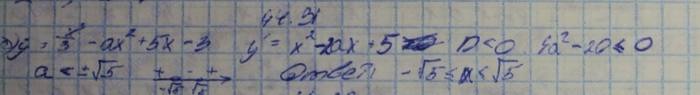 44.31
y = x³/3 - ax² + 5x - 3 y' = x² - 2ax + 5 D < 0 4a² - 20 ≤ 0
a < ±√5 + - + -√5 √5 Ответ: -√5 ≤ a ≤ √5